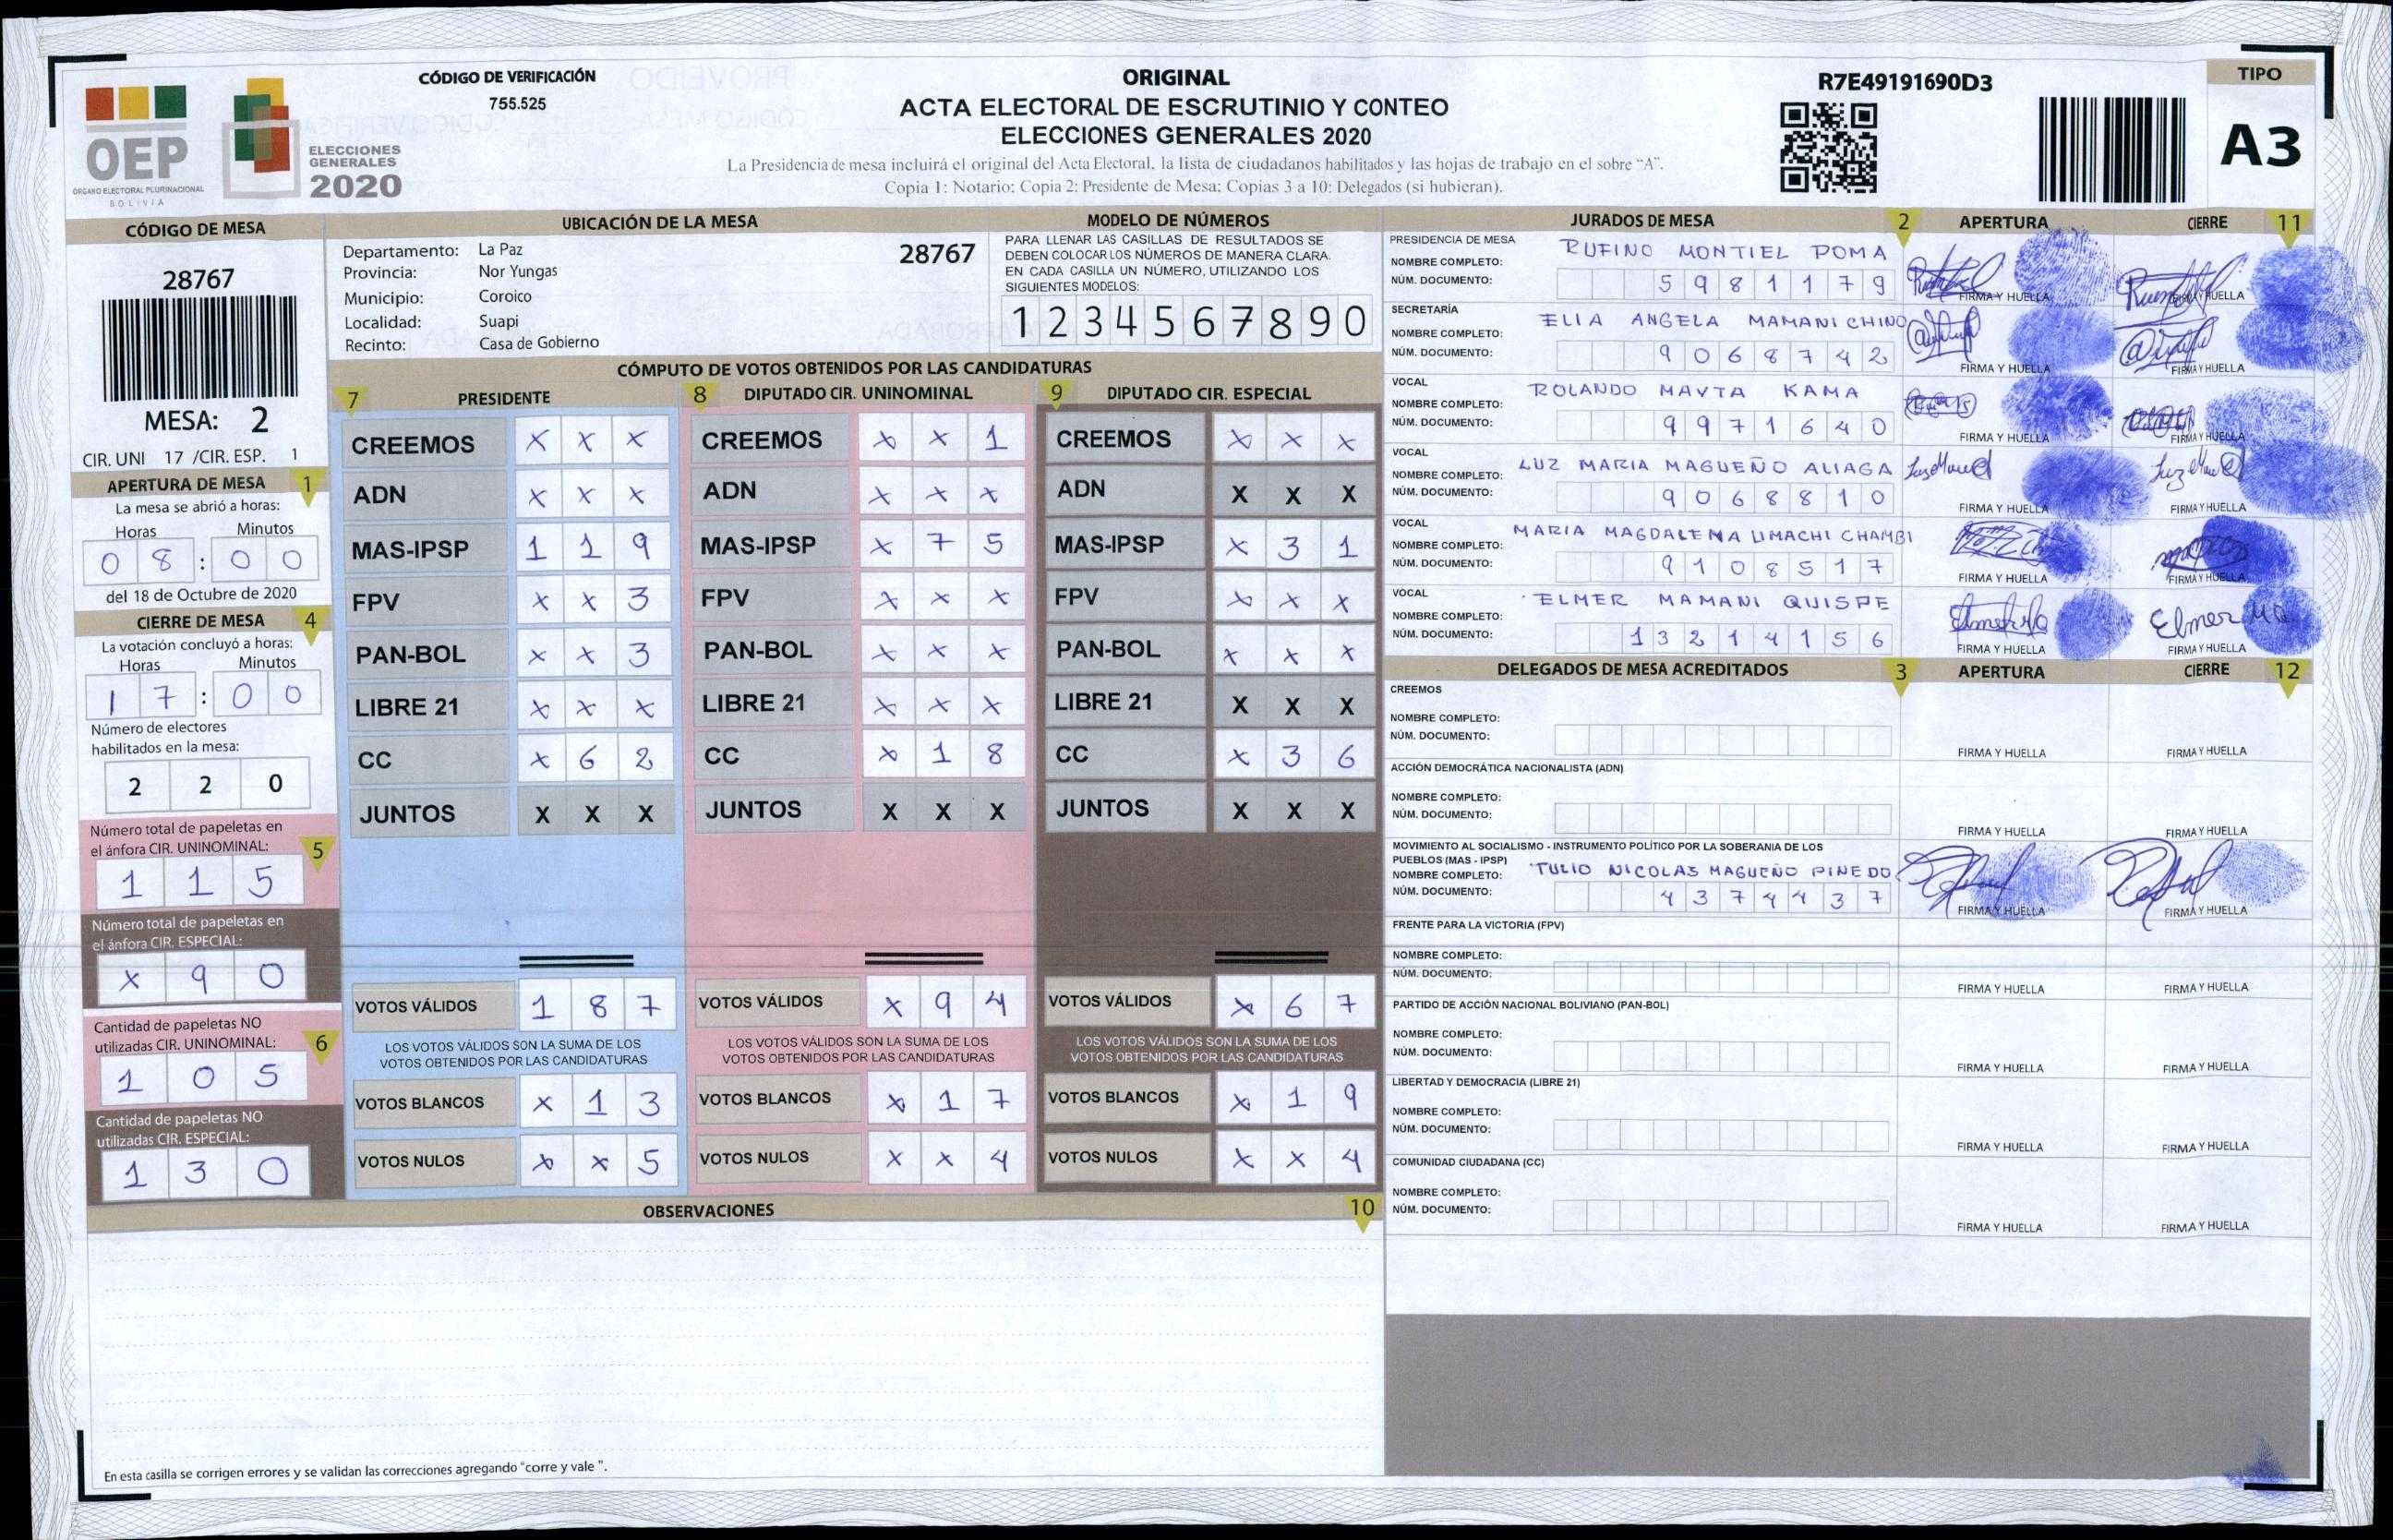 CÓDIGO DE VERIFICACIÓN
755.525
ORIGINAL
ACTA ELECTORAL DE ESCRUTINIO Y CONTEO
ELECCIONES GENERALES 2020
La Presidencia de mesa incluirá el original del Acta Electoral, la lista de ciudadanos habilitados y las hojas de trabajo en el sobre "A".
Copia 1: Notario; Copia 2: Presidente de Mesa; Copias 3 a 10: Delegados (si hubieran).
R7E49191690D3
TIPO
A3
OEP
ÓRGANO ELECTORAL PLURINACIONAL
BOLIVIA
ELECCIONES
GENERALES
2020
CÓDIGO DE MESA
28767
MESA: 2
CIR. UNI 17 /CIR. ESP. 1
APERTURA DE MESA 1
La mesa se abrió a horas:
Horas Minutos
0 8 : 0 0
del 18 de Octubre de 2020
CIERRE DE MESA 4
La votación concluyó a horas:
Horas Minutos
1 7 : 0 0
Número de electores
habilitados en la mesa:
2 2 0
Número total de papeletas en
el ánfora CIR. UNINOMINAL: 5
1 1 5
Número total de papeletas en
el ánfora CIR. ESPECIAL:
x 9 0
Cantidad de papeletas NO
utilizadas CIR. UNINOMINAL: 6
1 0 5
Cantidad de papeletas NO
utilizadas CIR. ESPECIAL:
1 3 0
UBICACIÓN DE LA MESA
Departamento: La Paz 28767
Provincia: Nor Yungas
Municipio: Coroico
Localidad: Suapi
Recinto: Casa de Gobierno
MODELO DE NÚMEROS
PARA LLENAR LAS CASILLAS DE RESULTADOS SE
DEBEN COLOCAR LOS NÚMEROS DE MANERA CLARA.
EN CADA CASILLA UN NÚMERO, UTILIZANDO LOS
SIGUIENTES MODELOS:
1 2 3 4 5 6 7 8 9 0
CÓMPUTO DE VOTOS OBTENIDOS POR LAS CANDIDATURAS
7 PRESIDENTE
CREEMOS x x x
ADN x x x
MAS-IPSP 1 1 9
FPV x x 3
PAN-BOL x x 3
LIBRE 21 x x x
CC x 6 2
JUNTOS X X X
VOTOS VÁLIDOS 1 8 7
LOS VOTOS VÁLIDOS SON LA SUMA DE LOS
VOTOS OBTENIDOS POR LAS CANDIDATURAS
VOTOS BLANCOS x 1 3
VOTOS NULOS x x 5
8 DIPUTADO CIR. UNINOMINAL
CREEMOS x x 1
ADN x x x
MAS-IPSP x 7 5
FPV x x x
PAN-BOL x x x
LIBRE 21 x x x
CC x 1 8
JUNTOS X X X
VOTOS VÁLIDOS x 9 4
LOS VOTOS VÁLIDOS SON LA SUMA DE LOS
VOTOS OBTENIDOS POR LAS CANDIDATURAS
VOTOS BLANCOS x 1 7
VOTOS NULOS x x 4
9 DIPUTADO CIR. ESPECIAL
CREEMOS x x x
ADN X X X
MAS-IPSP x 3 1
FPV x x x
PAN-BOL x x x
LIBRE 21 X X X
CC x 3 6
JUNTOS X X X
VOTOS VÁLIDOS x 6 7
LOS VOTOS VÁLIDOS SON LA SUMA DE LOS
VOTOS OBTENIDOS POR LAS CANDIDATURAS
VOTOS BLANCOS x 1 9
VOTOS NULOS x x 4
OBSERVACIONES 10
En esta casilla se corrigen errores y se validan las correcciones agregando "corre y vale ".
JURADOS DE MESA 2 APERTURA CIERRE 11
PRESIDENCIA DE MESA
NOMBRE COMPLETO: RUFINO MONTIEL POMA
NÚM. DOCUMENTO: 5 9 8 1 1 7 9
FIRMA Y HUELLA FIRMA Y HUELLA
SECRETARÍA
NOMBRE COMPLETO: ELIA ANGELA MAMANI CHINO
NÚM. DOCUMENTO: 9 0 6 8 7 4 2
FIRMA Y HUELLA FIRMA Y HUELLA
VOCAL
NOMBRE COMPLETO: ROLANDO MAYTA KAMA
NÚM. DOCUMENTO: 9 9 7 1 6 4 0
FIRMA Y HUELLA FIRMA Y HUELLA
VOCAL
NOMBRE COMPLETO: LUZ MARIA MAGUEÑO ALIAGA
NÚM. DOCUMENTO: 9 0 6 8 8 1 0
FIRMA Y HUELLA FIRMA Y HUELLA
VOCAL
NOMBRE COMPLETO: MARIA MAGDALENA LIMACHI CHAMBI
NÚM. DOCUMENTO: 9 1 0 8 5 1 7
FIRMA Y HUELLA FIRMA Y HUELLA
VOCAL
NOMBRE COMPLETO: ELMER MAMANI QUISPE
NÚM. DOCUMENTO: 1 3 2 1 4 1 5 6
FIRMA Y HUELLA FIRMA Y HUELLA
DELEGADOS DE MESA ACREDITADOS 3 APERTURA CIERRE 12
CREEMOS
NOMBRE COMPLETO:
NÚM. DOCUMENTO:
FIRMA Y HUELLA FIRMA Y HUELLA
ACCIÓN DEMOCRÁTICA NACIONALISTA (ADN)
NOMBRE COMPLETO:
NÚM. DOCUMENTO:
FIRMA Y HUELLA FIRMA Y HUELLA
MOVIMIENTO AL SOCIALISMO - INSTRUMENTO POLÍTICO POR LA SOBERANIA DE LOS
PUEBLOS (MAS - IPSP)
NOMBRE COMPLETO: TULIO NICOLAS MAGUEÑO PINEDO
NÚM. DOCUMENTO: 4 3 7 4 4 3 7
FIRMA Y HUELLA FIRMA Y HUELLA
FRENTE PARA LA VICTORIA (FPV)
NOMBRE COMPLETO:
NÚM. DOCUMENTO:
FIRMA Y HUELLA FIRMA Y HUELLA
PARTIDO DE ACCIÓN NACIONAL BOLIVIANO (PAN-BOL)
NOMBRE COMPLETO:
NÚM. DOCUMENTO:
FIRMA Y HUELLA FIRMA Y HUELLA
LIBERTAD Y DEMOCRACIA (LIBRE 21)
NOMBRE COMPLETO:
NÚM. DOCUMENTO:
FIRMA Y HUELLA FIRMA Y HUELLA
COMUNIDAD CIUDADANA (CC)
NOMBRE COMPLETO:
NÚM. DOCUMENTO:
FIRMA Y HUELLA FIRMA Y HUELLA